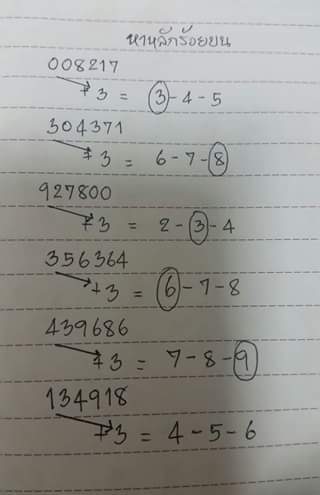 หาหลักร้อยบน
008217
+3 = 3-4-5
304371
+3 = 6-7-8
927800
+3 = 2-3-4
356364
+3 = 6-7-8
439686
+3 = 7-8-9
134918
+3 = 4-5-6